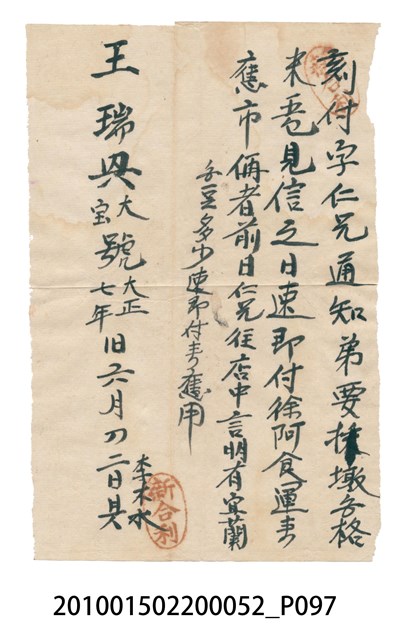 刻付字仁兄通知弟要採墩步格
来壱見信之日速即付徐阿食運来
應市俩者前日仁兄往店中言明有宜蘭
豆多少速即付来應用
王瑞興大宝號大正七年旧六月刀二日具
李木水
新合利
201001502200052_P097